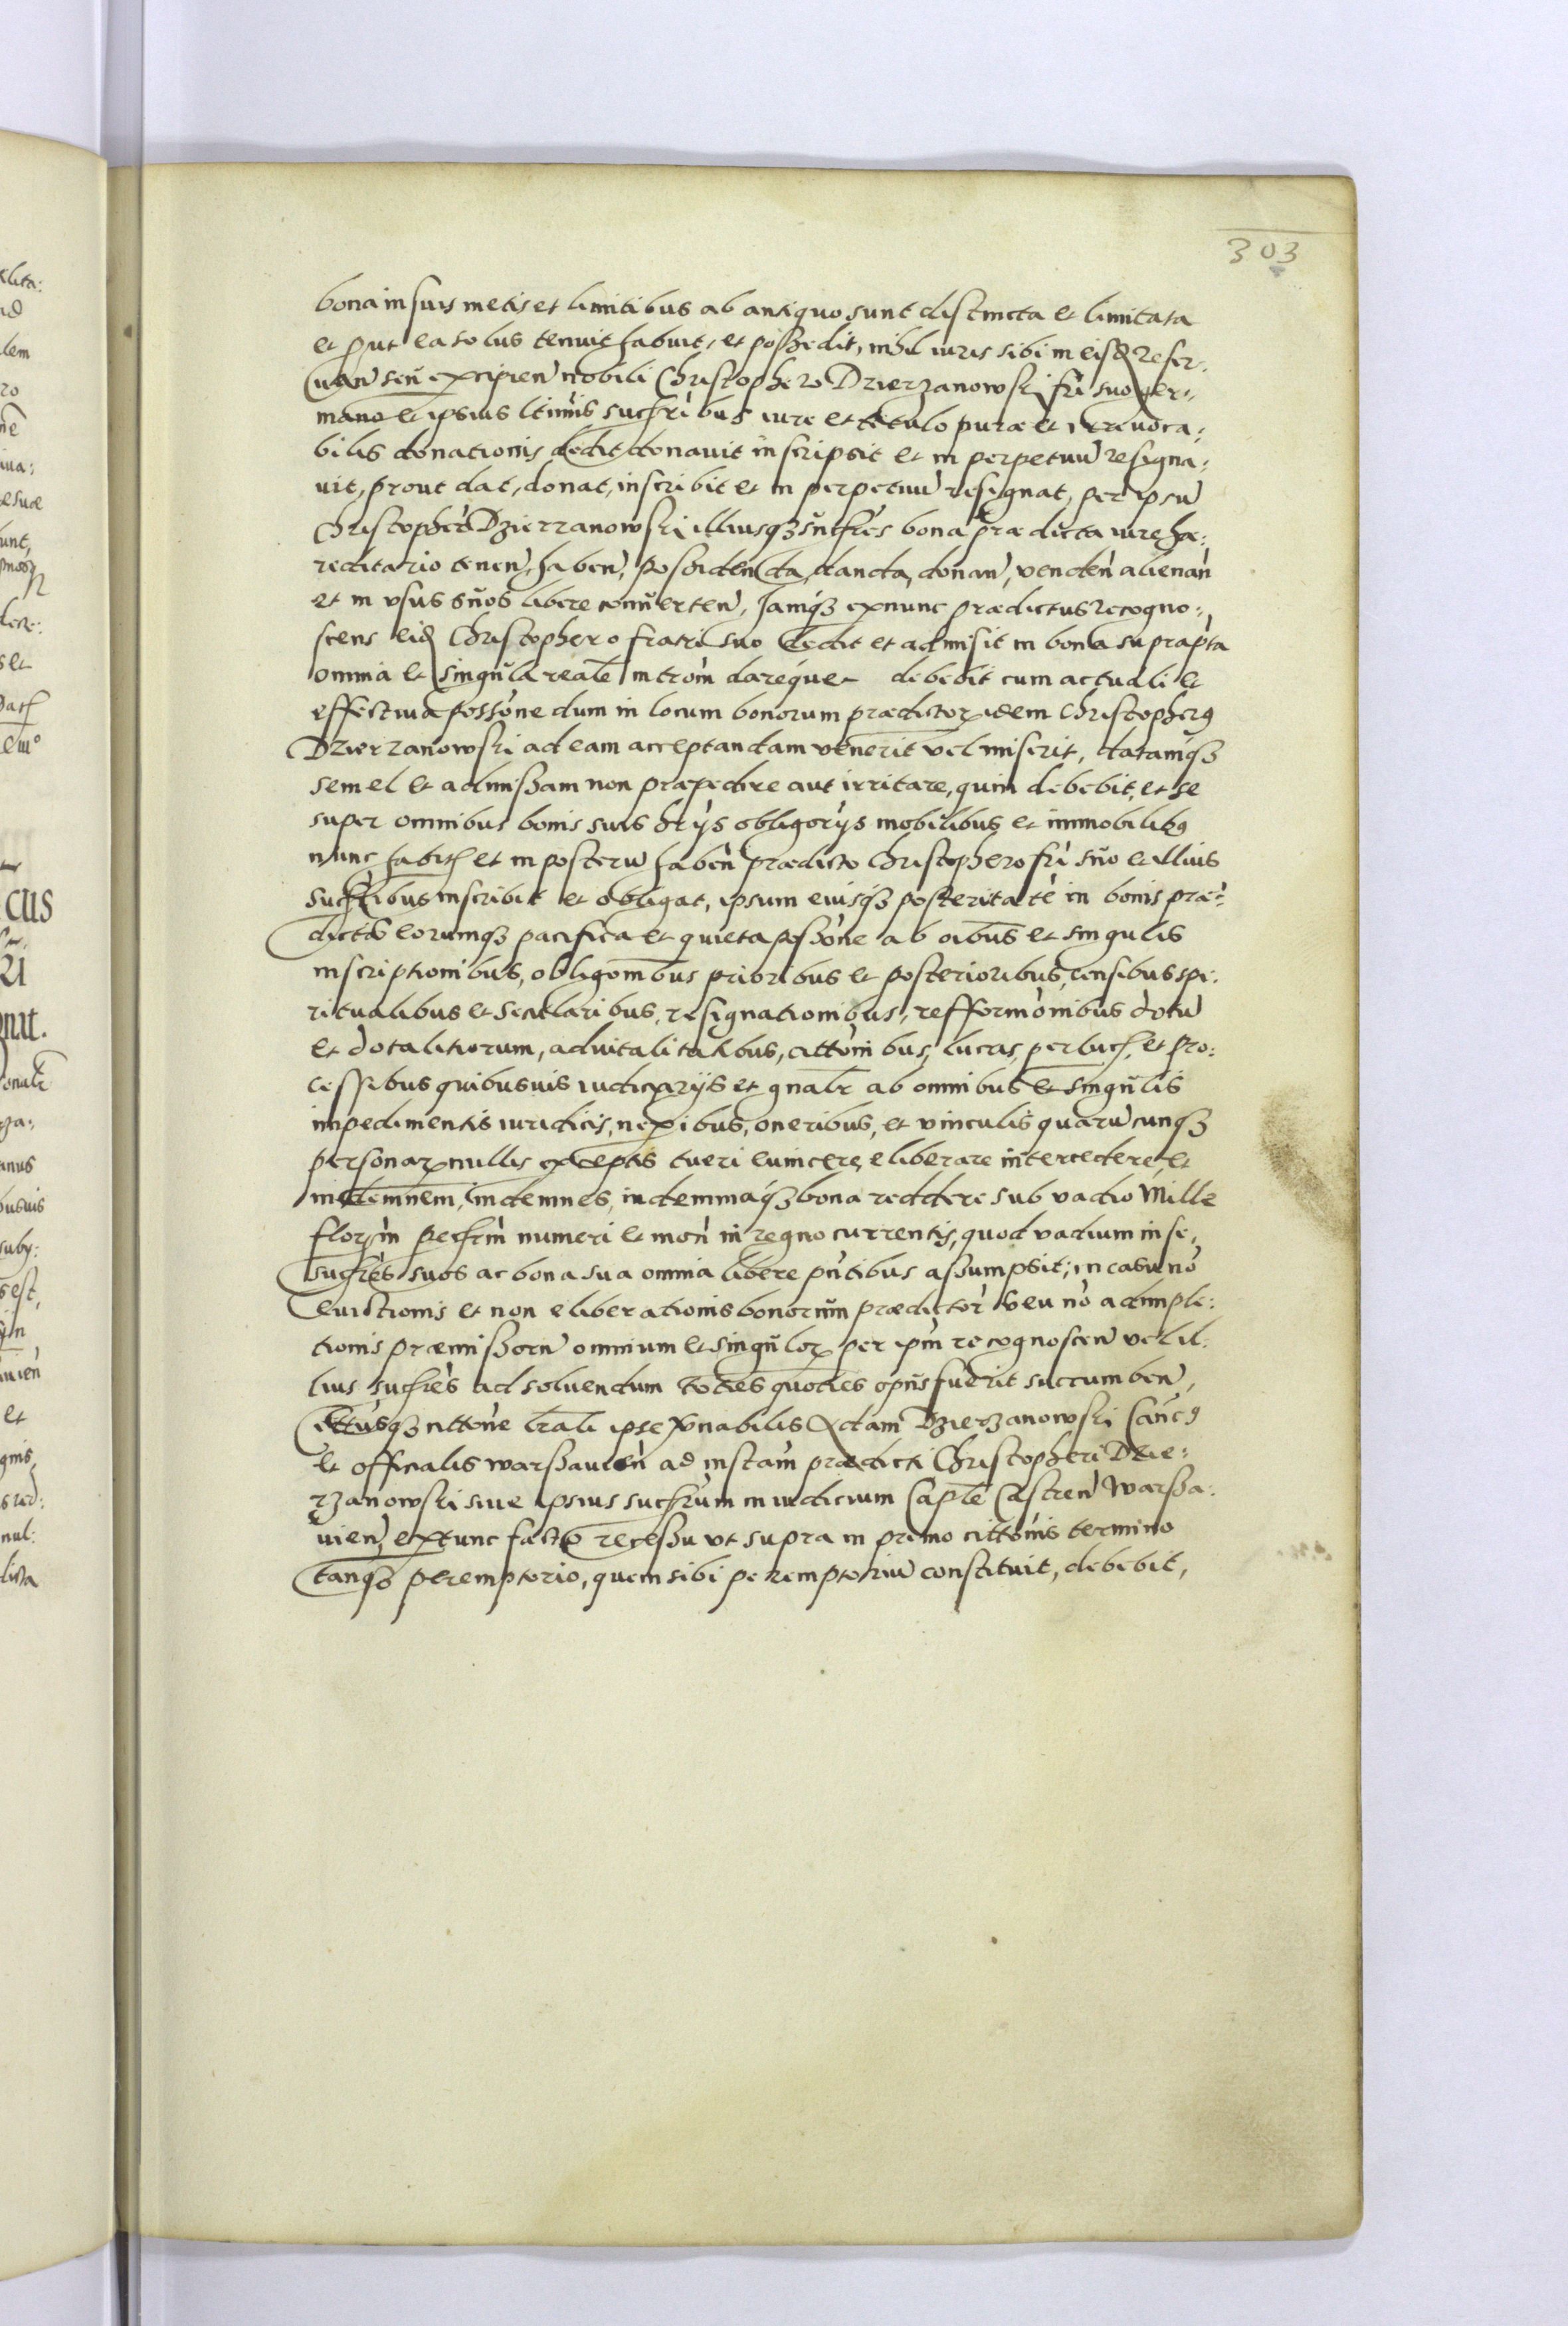 303
bona in suis metis et limitibus ab antiquo sunt distincta et limitata
et put ea solus tenuit habuit, et possedit, nihil iuris sibi in eisd reser:
uan seu excipien nobili Christophero Dzierzanowski fri suo ger:
mano et ipsius ltimis succribus iure et titulo puræ et irreuoca:
bilis donationis dedit donauit inscripsit et in perpetuu resigna:
uit, prout dat, donat, inscribit et in perpetuu resignat, per ipsu
Christopheru Dzierzanowski illiusq3 succres bona prædicta iure hæ:
reditario tenen, haben, possidenda, danda, donan, venden alienan
et in vsus suos libere conuerten, Jamq3 exnunc prædictus recogno:
scens eid Christophero fratri suo dedit et admisit in bona suprapta
omnia et singula reale introm dareque debebit cum actuali et
effectiua possone dum in locum bonorum prædictor idem Christopher9
Dzierzanowski ad eam acceptandam venerit vel miserit, datamq3
semel et admissam non præpedire aut irritare, quin debebit, et se
super omnibus bonis suis hrys obligorys mobilibus et immobilib9
nunc habit et in posteru haben prædicto Christophero fri suo et illius
succribus inscribit et obligat, ipsum eiusq3 posteritate in bonis præ:
dictis eorumq3 pacifica et quieta possone ab oibus et singulis
inscriptionibus, obligombus prioribus et posterioribus, censibus spi:
ritualibus et secularibus, resignationibus, refformonibus dotu
et dotalitiorum, aduitalitatibus, cittonibus, lucris, perlucr, et pro:
cessibus quibusuis iudiciarijs et gnalr ab omnibus et singulis
impedimentis iuridicis, nexibus, oneribus, et vinculis quarucunq3
personar nullis exceptis tueri euincere, eliberare intercedere, et
indemnem, indemnes, indemniaq3 bona reddere sub vadio Mille
florin pecrm numeri et mon in regno currentis, quod vadium in se,
succres suos ac bona sua omnia libere pntibus assumpsit; in casu no
euictionis et non eliberationis bonorum prædictor seu no adimple:
tionis præmissoru omnium et singulor per ipm recognoscen vel il:
lius succres ad soluendum toties quoties opus fuerit succumben,
cittusq3 cittone lrali ipse vnabilis Adam Dzierzanowski Canc9
et officialis warssauien ad instam prædicti Christopheri Dzie:
rzanowski siue ipsius succrum in iudicium Caple Castren Warssa:
uien, extunc facto recessu vt supra in primo cittonis termino
tanq3 peremptorio, quem sibi peremptoriu constituit, debebit,